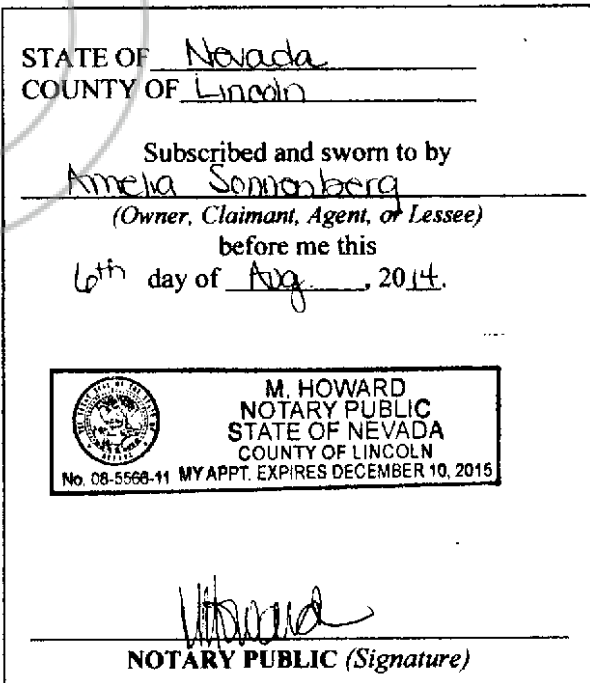 STATE OF Nevada
COUNTY OF Lincoln
Subscribed and sworn to by
Amelia Sonnenberg
(Owner, Claimant, Agent, or Lessee)
before me this
6th day of Aug, 2014.
M. HOWARD
NOTARY PUBLIC
STATE OF NEVADA
COUNTY OF LINCOLN
No. 08-5566-11 MY APPT. EXPIRES DECEMBER 10, 2015
MHoward
NOTARY PUBLIC (Signature)